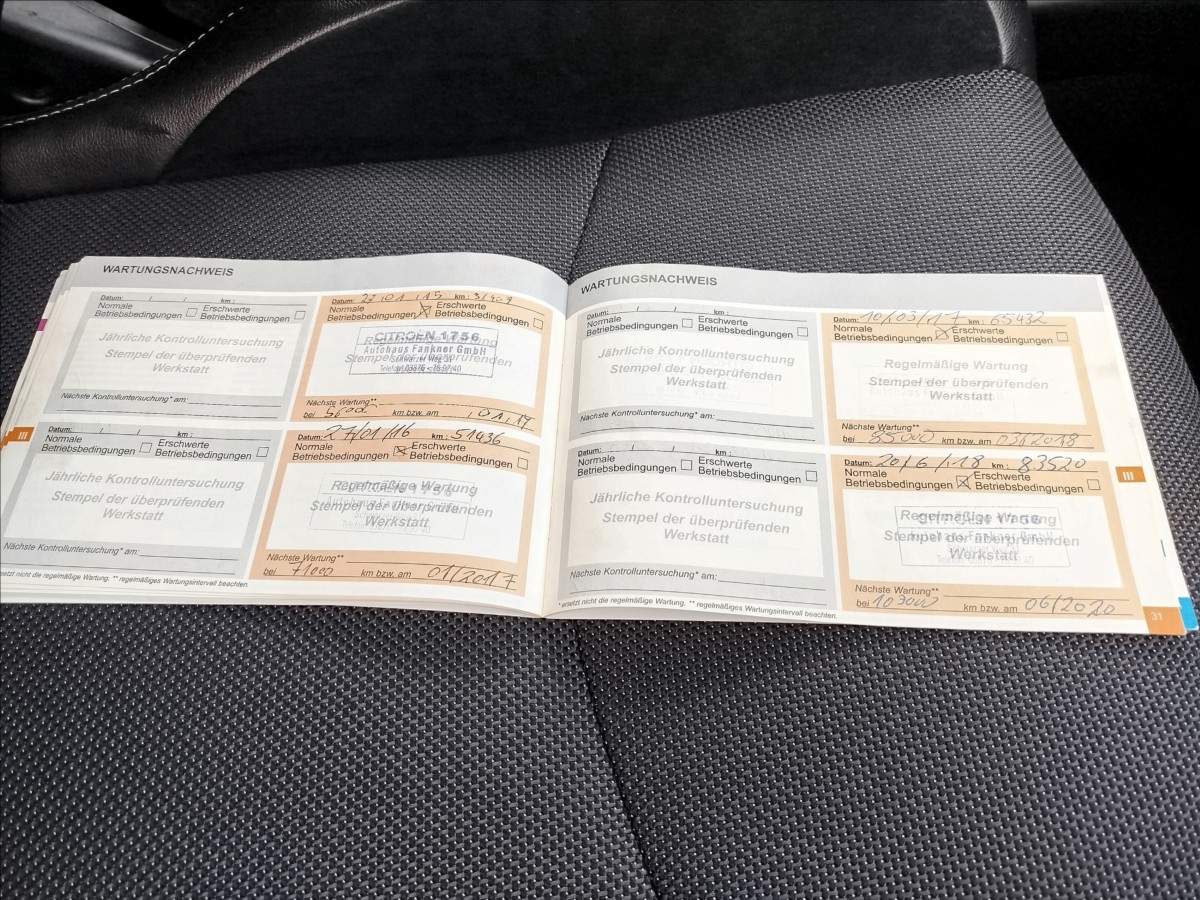 WARTUNGSNACHWEIS
Datum: / / km :
Normale Betriebsbedingungen
Erschwerte Betriebsbedingungen
Jährliche Kontrolluntersuchung
Stempel der überprüfenden
Werkstatt
Nächste Kontrolluntersuchung* am:
Datum: / 15 km :
Normale Betriebsbedingungen
Erschwerte Betriebsbedingungen
CITROEN 1756
Autohaus Fankner GmbH
Schwarzer Weg
Telefon
Nächste Wartung**
bei km bzw. am
Datum: / / km :
Normale Betriebsbedingungen
Erschwerte Betriebsbedingungen
Jährliche Kontrolluntersuchung
Stempel der überprüfenden
Werkstatt
Nächste Kontrolluntersuchung* am:
Datum: 27/01/16 km : 51436
Normale Betriebsbedingungen
Erschwerte Betriebsbedingungen
Regelmäßige Wartung
Stempel der überprüfenden
Werkstatt
Nächste Wartung**
bei 71000 km bzw. am 01/2017
ersetzt nicht die regelmäßige Wartung. ** regelmäßiges Wartungsintervall beachten.
III
WARTUNGSNACHWEIS
Datum: / / km :
Normale Betriebsbedingungen
Erschwerte Betriebsbedingungen
Jährliche Kontrolluntersuchung
Stempel der überprüfenden
Werkstatt
Nächste Kontrolluntersuchung* am:
Datum: 10/03/17 km : 65432
Normale Betriebsbedingungen
Erschwerte Betriebsbedingungen
Regelmäßige Wartung
Stempel der überprüfenden
Werkstatt
Nächste Wartung**
bei 85000 km bzw. am 03/2018
Datum: / / km :
Normale Betriebsbedingungen
Erschwerte Betriebsbedingungen
Jährliche Kontrolluntersuchung
Stempel der überprüfenden
Werkstatt
Nächste Kontrolluntersuchung* am:
Datum: 20/6/18 km : 83520
Normale Betriebsbedingungen
Erschwerte Betriebsbedingungen
Regelmäßige Wartung
Stempel der überprüfenden
Werkstatt
Nächste Wartung**
bei km bzw. am 06/2020
* ersetzt nicht die regelmäßige Wartung. ** regelmäßiges Wartungsintervall beachten.
III
31